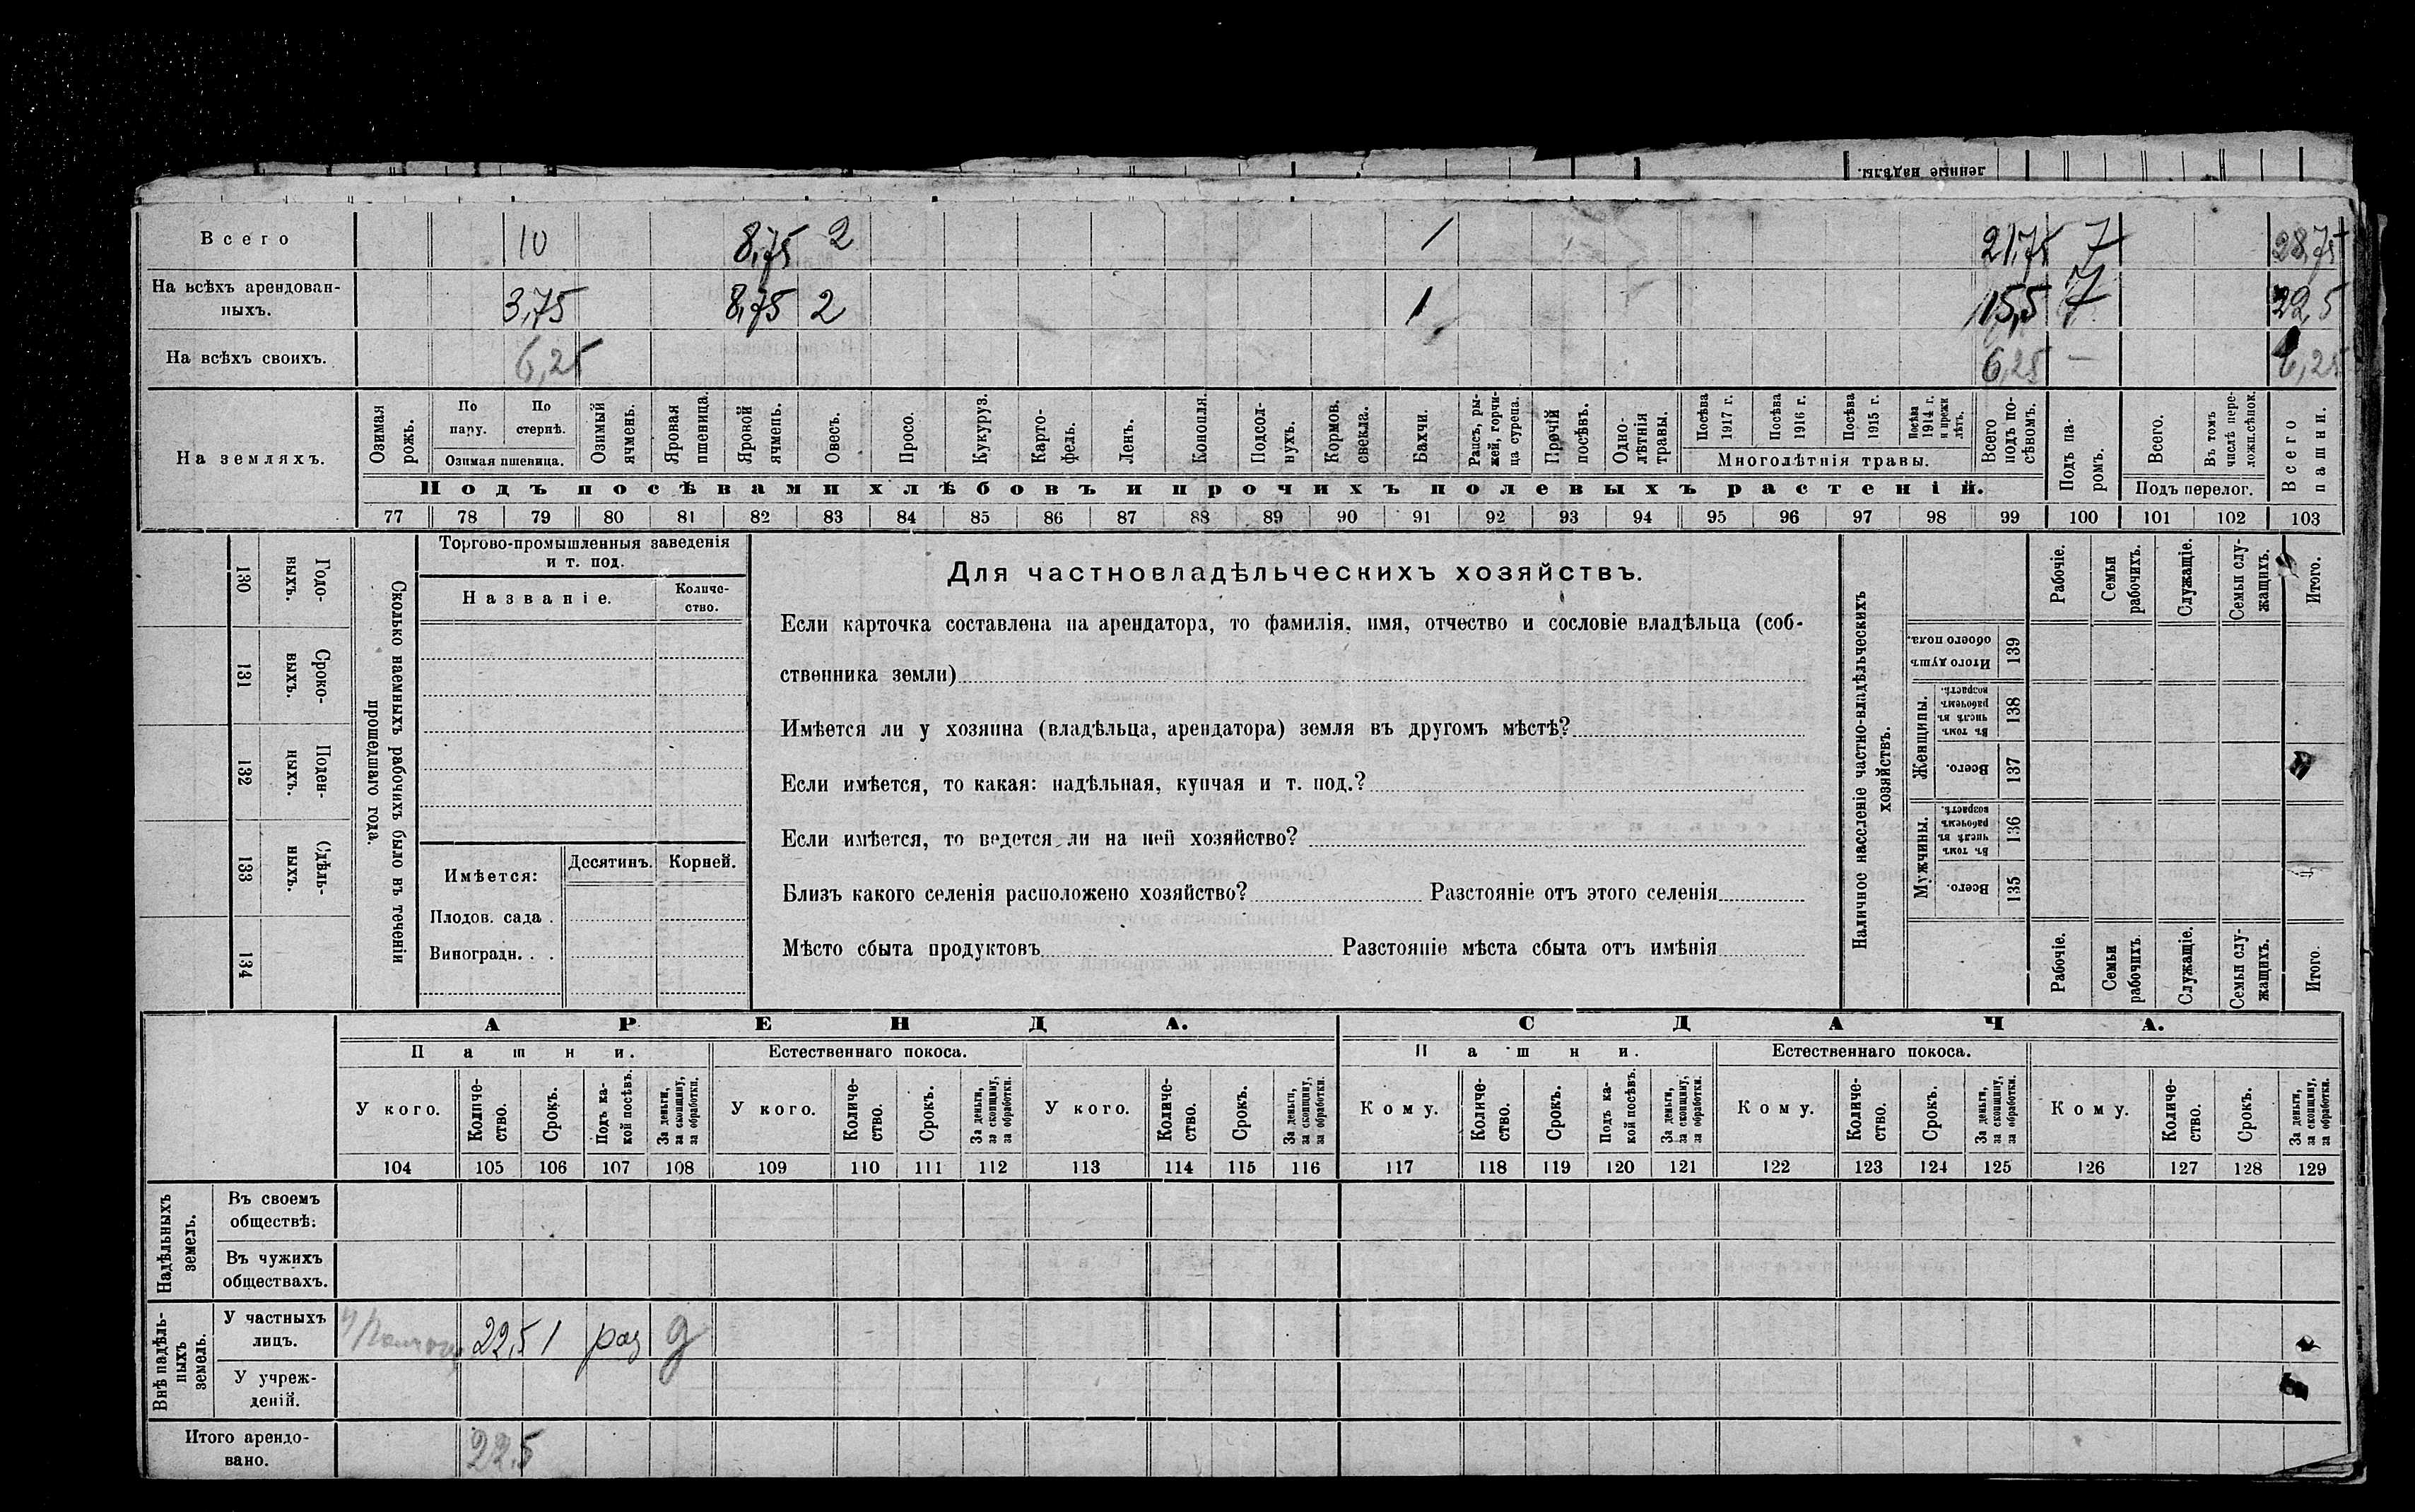 ленные надѣлы.
Всего 10 8,75 2 1 21,75 7 28,75
На всѣхъ арендован-
ныхъ. 3,75 8,75 2 1 15,5 7 22,5
На всѣхъ своихъ. 6,25 6,25 — 6,25
На земляхъ.
Озимая рожь.
По пару.
По стернѣ.
Озимая пшеница.
Озимый ячмень.
Яровая пшеница.
Яровой ячмень.
Овесъ.
Просо.
Кукуруз.
Карто-
фель.
Ленъ.
Конопля.
Подсол-
нухъ.
Кормов.
свекла.
Бахчи.
Рапсъ, ры-
жей, горчи-
ца сурепа.
Прочій посѣвъ.
Одно-
лѣтнія травы.
Посѣва 1917 г.
Посѣва 1916 г.
Посѣва 1915 г.
Посѣва 1914 г. и прежн лѣтъ.
Многолѣтнія травы.
Всего подъ по-
сѣвомъ.
Подъ па-
ромъ.
Всего.
Въ томъ числѣ пере-
ложн.сѣнок.
Подъ перелог.
Всего пашни.
Подъ посѣвами хлѣбовъ и прочихъ полевыхъ растеній.
77 78 79 80 81 82 83 84 85 86 87 88 89 90 91 92 93 94 95 96 97 98 99 100 101 102 103
130 Годо-
выхъ.
131 Сроко-
выхъ.
132 Поден-
ныхъ.
133 Сдѣль-
ныхъ.
134
Сколько наемныхъ рабочихъ было въ теченіи
прошедшаго года.
Торгово-промышленныя заведенія
и т. под.
Названіе.
Количе-
ство.
Имѣется:
Десятинъ.
Корней.
Плодов. сада .
Виноградн. . .
Для частновладѣльческихъ хозяйствъ.
Если карточка составлена на арендатора, то фамилія, имя, отчество и сословіе владѣльца (соб-
ственника земли)
Имѣется ли у хозяина (владѣльца, арендатора) земля въ другомъ мѣстѣ?
Если имѣется, то какая: надѣльная, купчая и т. под.?
Если имѣется, то ведется ли на ней хозяйство?
Близъ какого селенія расположено хозяйство? Разстояніе отъ этого селенія
Мѣсто сбыта продуктовъ Разстояніе мѣста сбыта отъ имѣнія
Наличное населеніе частно-владѣльческихъ
хозяйствъ.
Рабочіе.
Семьи рабочихъ.
Служащіе.
Семьи слу-
жащихъ.
Итого.
Итого душъ обоего пола. 139
Женщины.
Въ томъ числѣ въ рабочемъ возрастѣ. 138
Всего. 137
Мужчины.
Въ томъ числѣ въ рабочемъ возрастѣ. 136
Всего. 135
Рабочіе.
Семьи рабочихъ.
Служащіе.
Семьи слу-
жащихъ.
Итого.
АРЕНДА.
СДАЧА.
Пашни.
Естественнаго покоса.
Пашни.
Естественнаго покоса.
У кого.
Количе-
ство.
Срокъ.
Подъ ка-
кой посѣвъ.
За деньги,
за скопщину,
за обработки.
У кого.
Количе-
ство.
Срокъ.
За деньги,
за скопщину,
за обработки.
У кого.
Количе-
ство.
Срокъ.
За деньги,
за скопщину,
за обработки.
Кому.
Количе-
ство.
Срокъ.
Подъ ка-
кой посѣвъ.
За деньги,
за скопщину,
за обработки.
Кому.
Количе-
ство.
Срокъ.
За деньги,
за скопщину,
за обработки.
Кому.
Количе-
ство.
Срокъ.
За деньги,
за скопщину,
за обработки.
104 105 106 107 108 109 110 111 112 113 114 115 116 117 118 119 120 121 122 123 124 125 126 127 128 129
Надѣльныхъ
земель.
Въ своемъ
обществѣ.
Въ чужихъ
обществахъ.
Внѣ надѣль-
ныхъ
земель.
У частныхъ
лицъ. 22,5 1 раз д
У учреж-
деній.
Итого арендо-
вано. 22,5